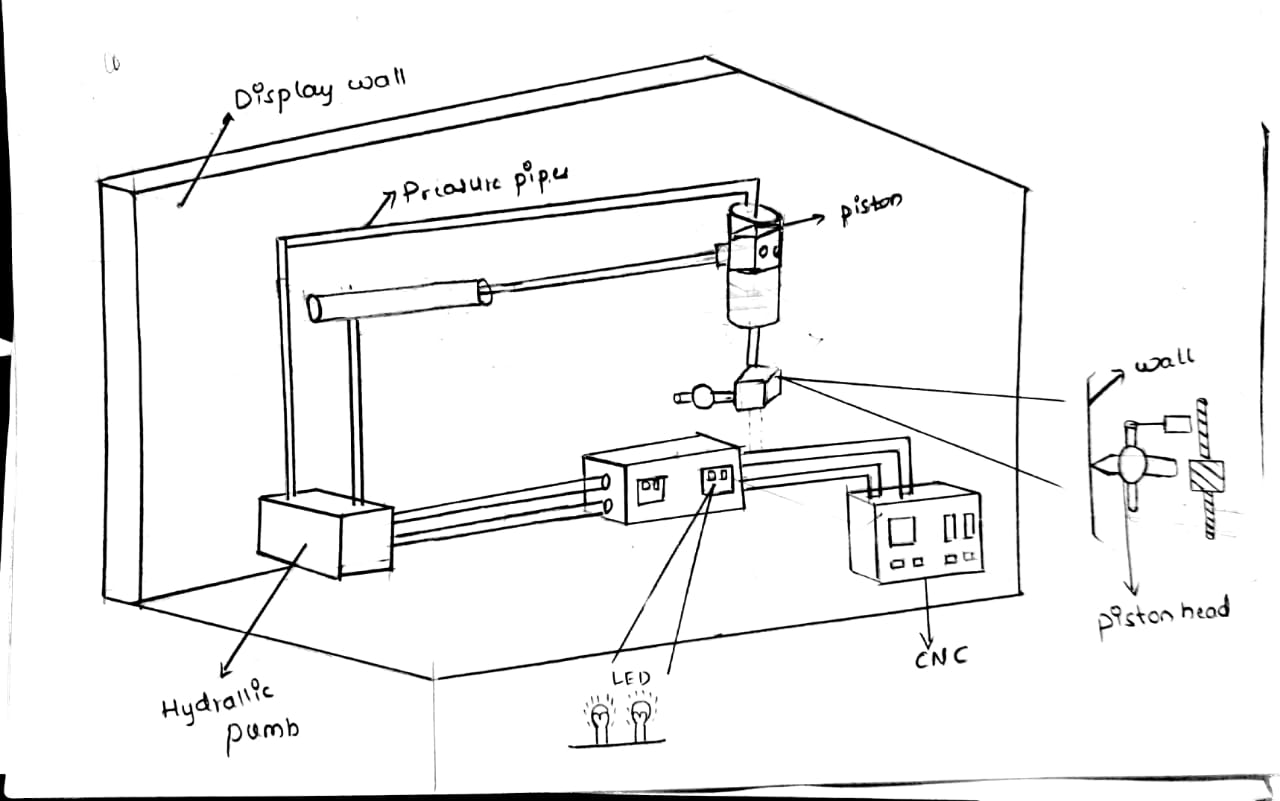 Display wall
Preasure pipes
piston
wall
piston head
CNC
LED
Hydrallic
pumb